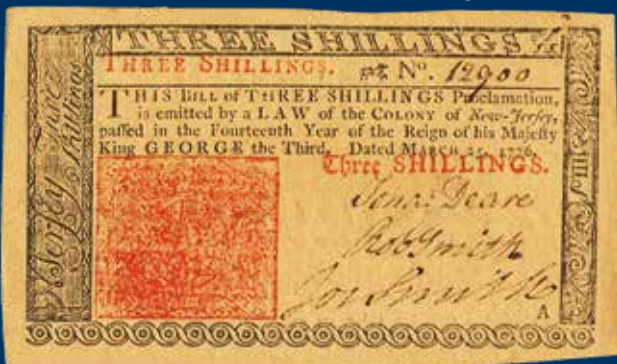 THREE SHILLINGS.
THREE SHILLINGS. No. 12900
THIS BILL of THREE SHILLINGS Proclamation,
is emitted by a LAW of the COLONY of New-Jersey,
paſſed in the Fourteenth Year of the Reign of his Majeſty
King GEORGE the Third. Dated MARCH 25, 1776.
Three SHILLINGS.
Jona: Deare
Rob Smith
Jos Smith
A
N Jerſey Three
Shillings